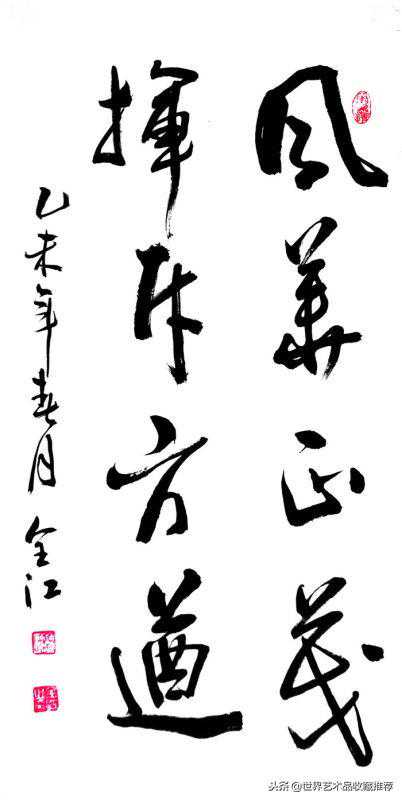 風華正茂
揮斥方遒
乙未年春月 全江
头条 @世界艺术品收藏推荐